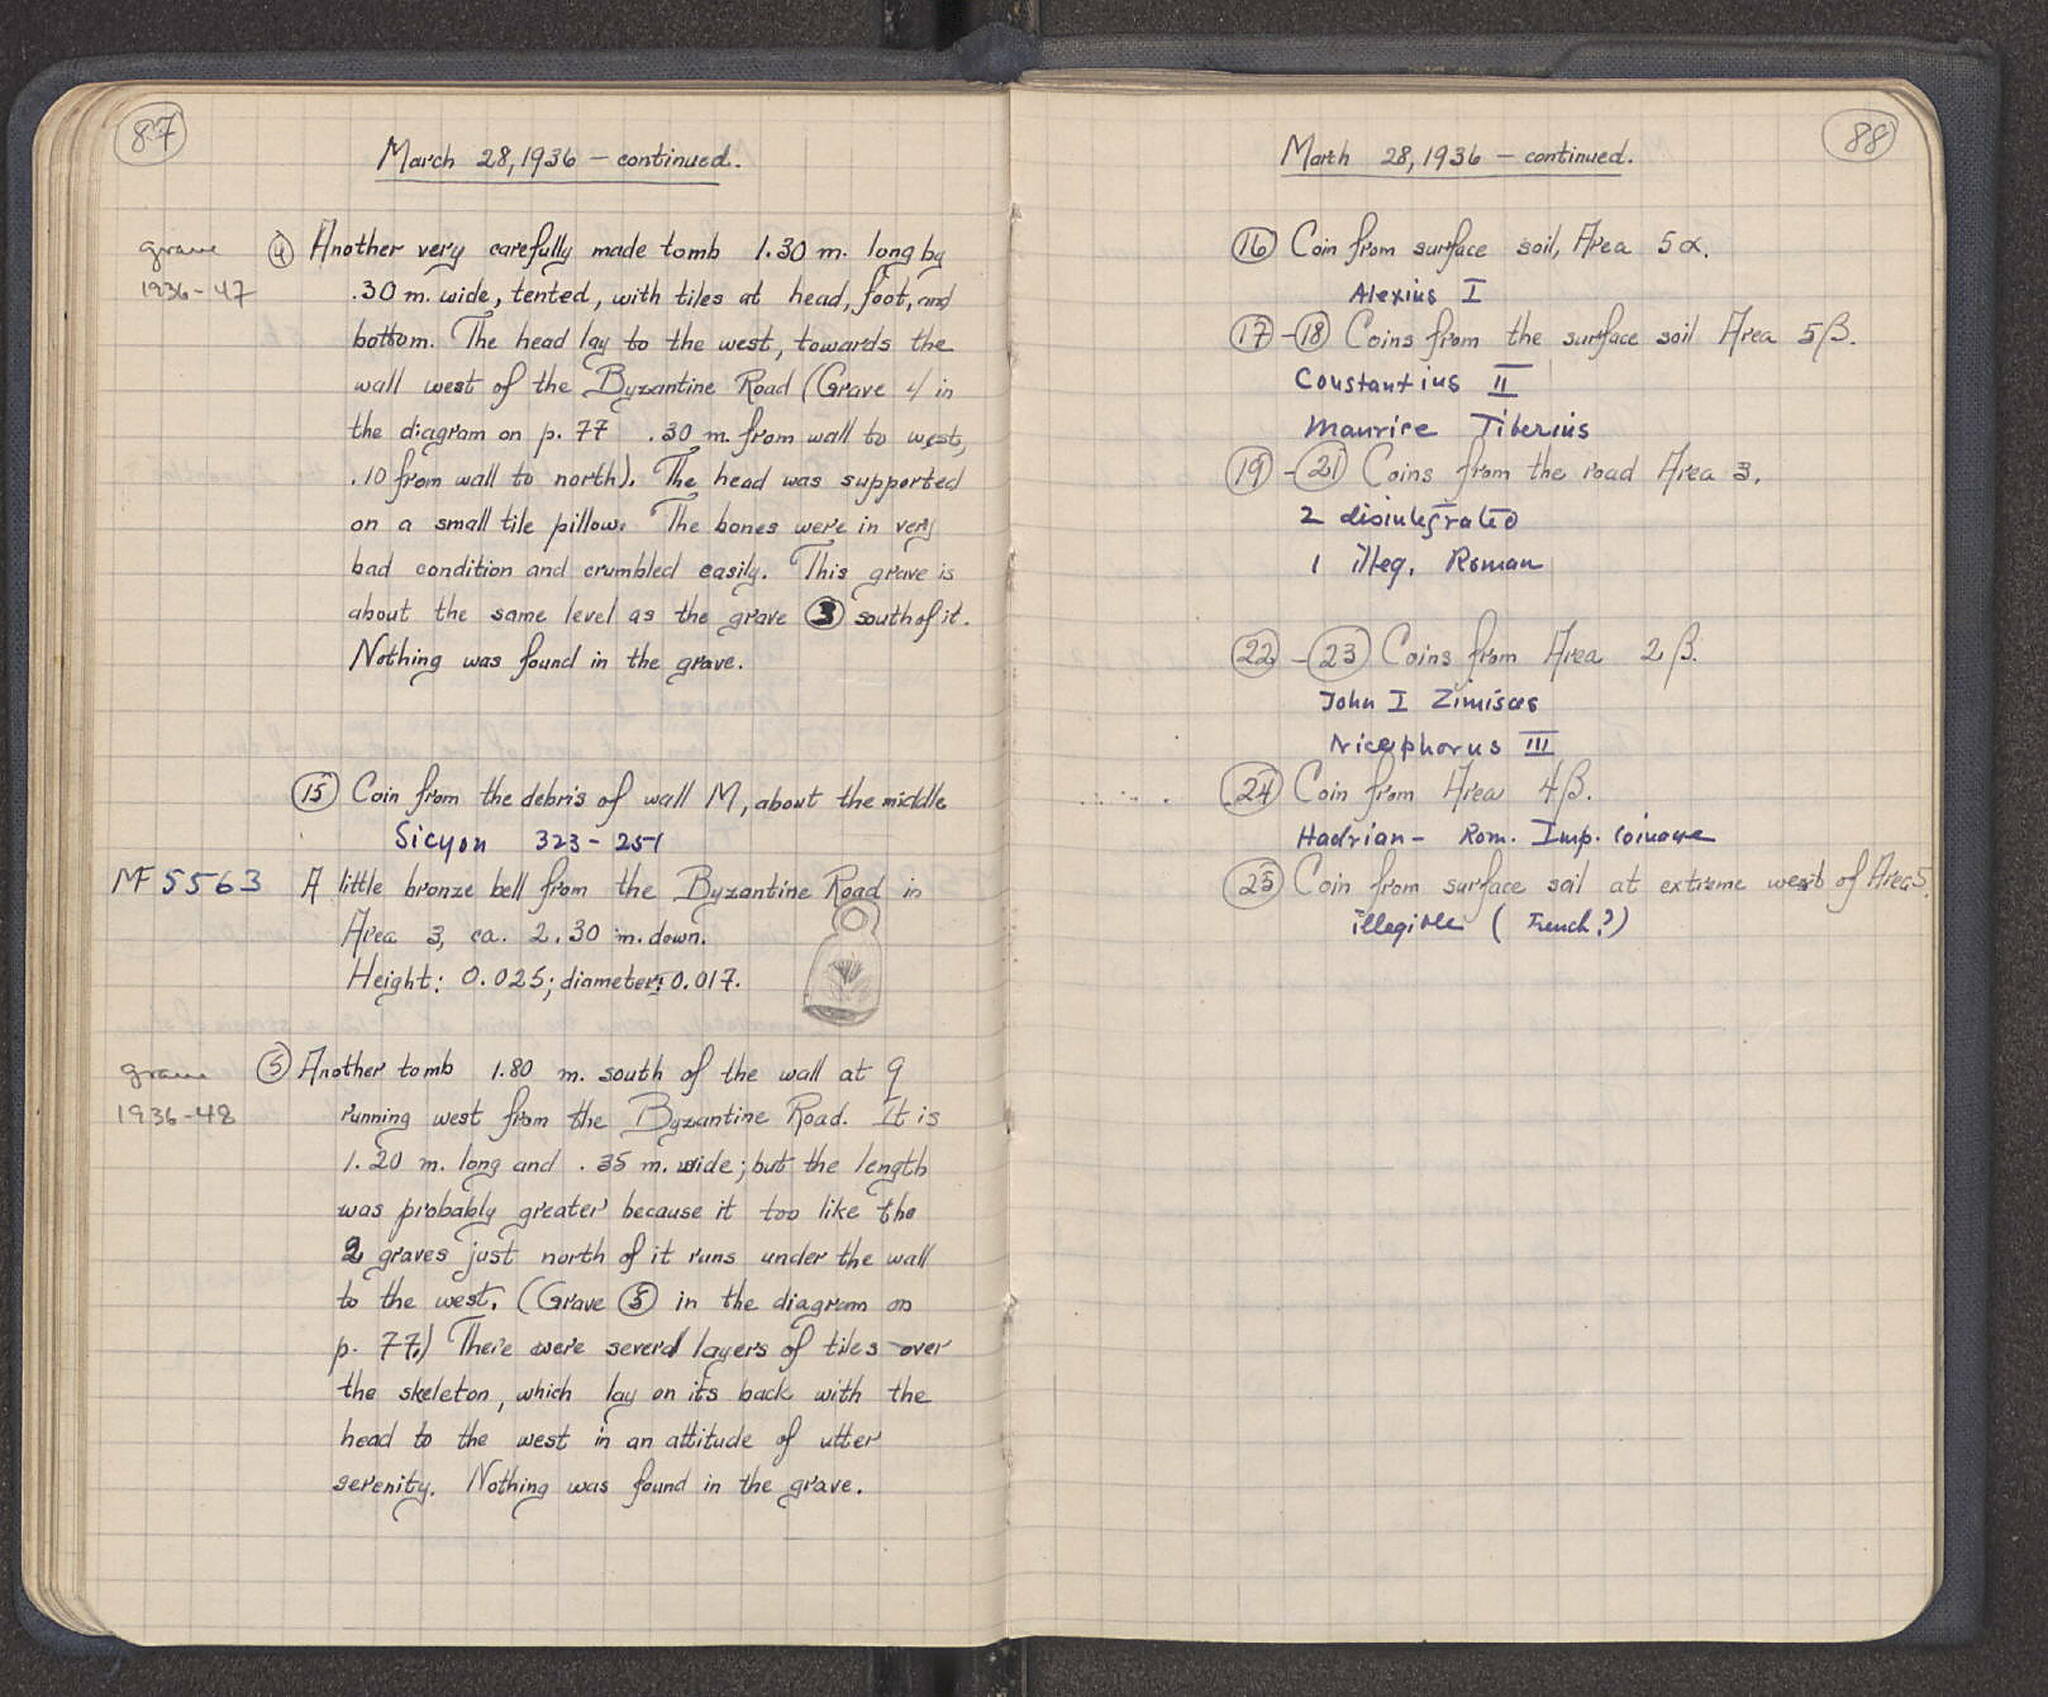 87
March 28, 1936 – continued.
grave
1936-47
④ Another very carefully made tomb 1.30 m. long by
.30 m. wide, tented, with tiles at head, foot, and
bottom. The head lay to the west, towards the
wall west of the Byzantine Road (Grave 4 in
the diagram on p. 77 .30 m. from wall to west,
.10 from wall to north). The head was supported
on a small tile pillow. The bones were in very
bad condition and crumbled easily. This grave is
about the same level as the grave ③ south of it.
Nothing was found in the grave.
⑮ Coin from the debris of wall M, about the middle
Sicyon 323-251
MF 5563
A little bronze bell from the Byzantine Road in
Area 3, ca. 2.30 m. down.
Height: 0.025; diameter: 0.017.
grave
1936-48
⑤ Another tomb 1.80 m. south of the wall at q
running west from the Byzantine Road. It is
1.20 m. long and .35 m. wide; but the length
was probably greater because it too like the
2 graves just north of it runs under the wall
to the west. (Grave ⑤ in the diagram on
p. 77.) There were several layers of tiles over
the skeleton, which lay on its back with the
head to the west in an attitude of utter
serenity. Nothing was found in the grave.
88
March 28, 1936 – continued.
⑯ Coin from surface soil, Area 5α.
Alexius I
⑰-⑱ Coins from the surface soil Area 5β.
Constantius II
Maurice Tiberius
⑲-㉑ Coins from the road Area 3.
2 disintegrated
1 illeg. Roman
㉒-㉓ Coins from Area 2β.
John I Zimisces
Nicephorus III
㉔ Coin from Area 4β.
Hadrian – Rom. Imp. coinage
㉕ Coin from surface soil at extreme west of Area 5.
illegible (French?)